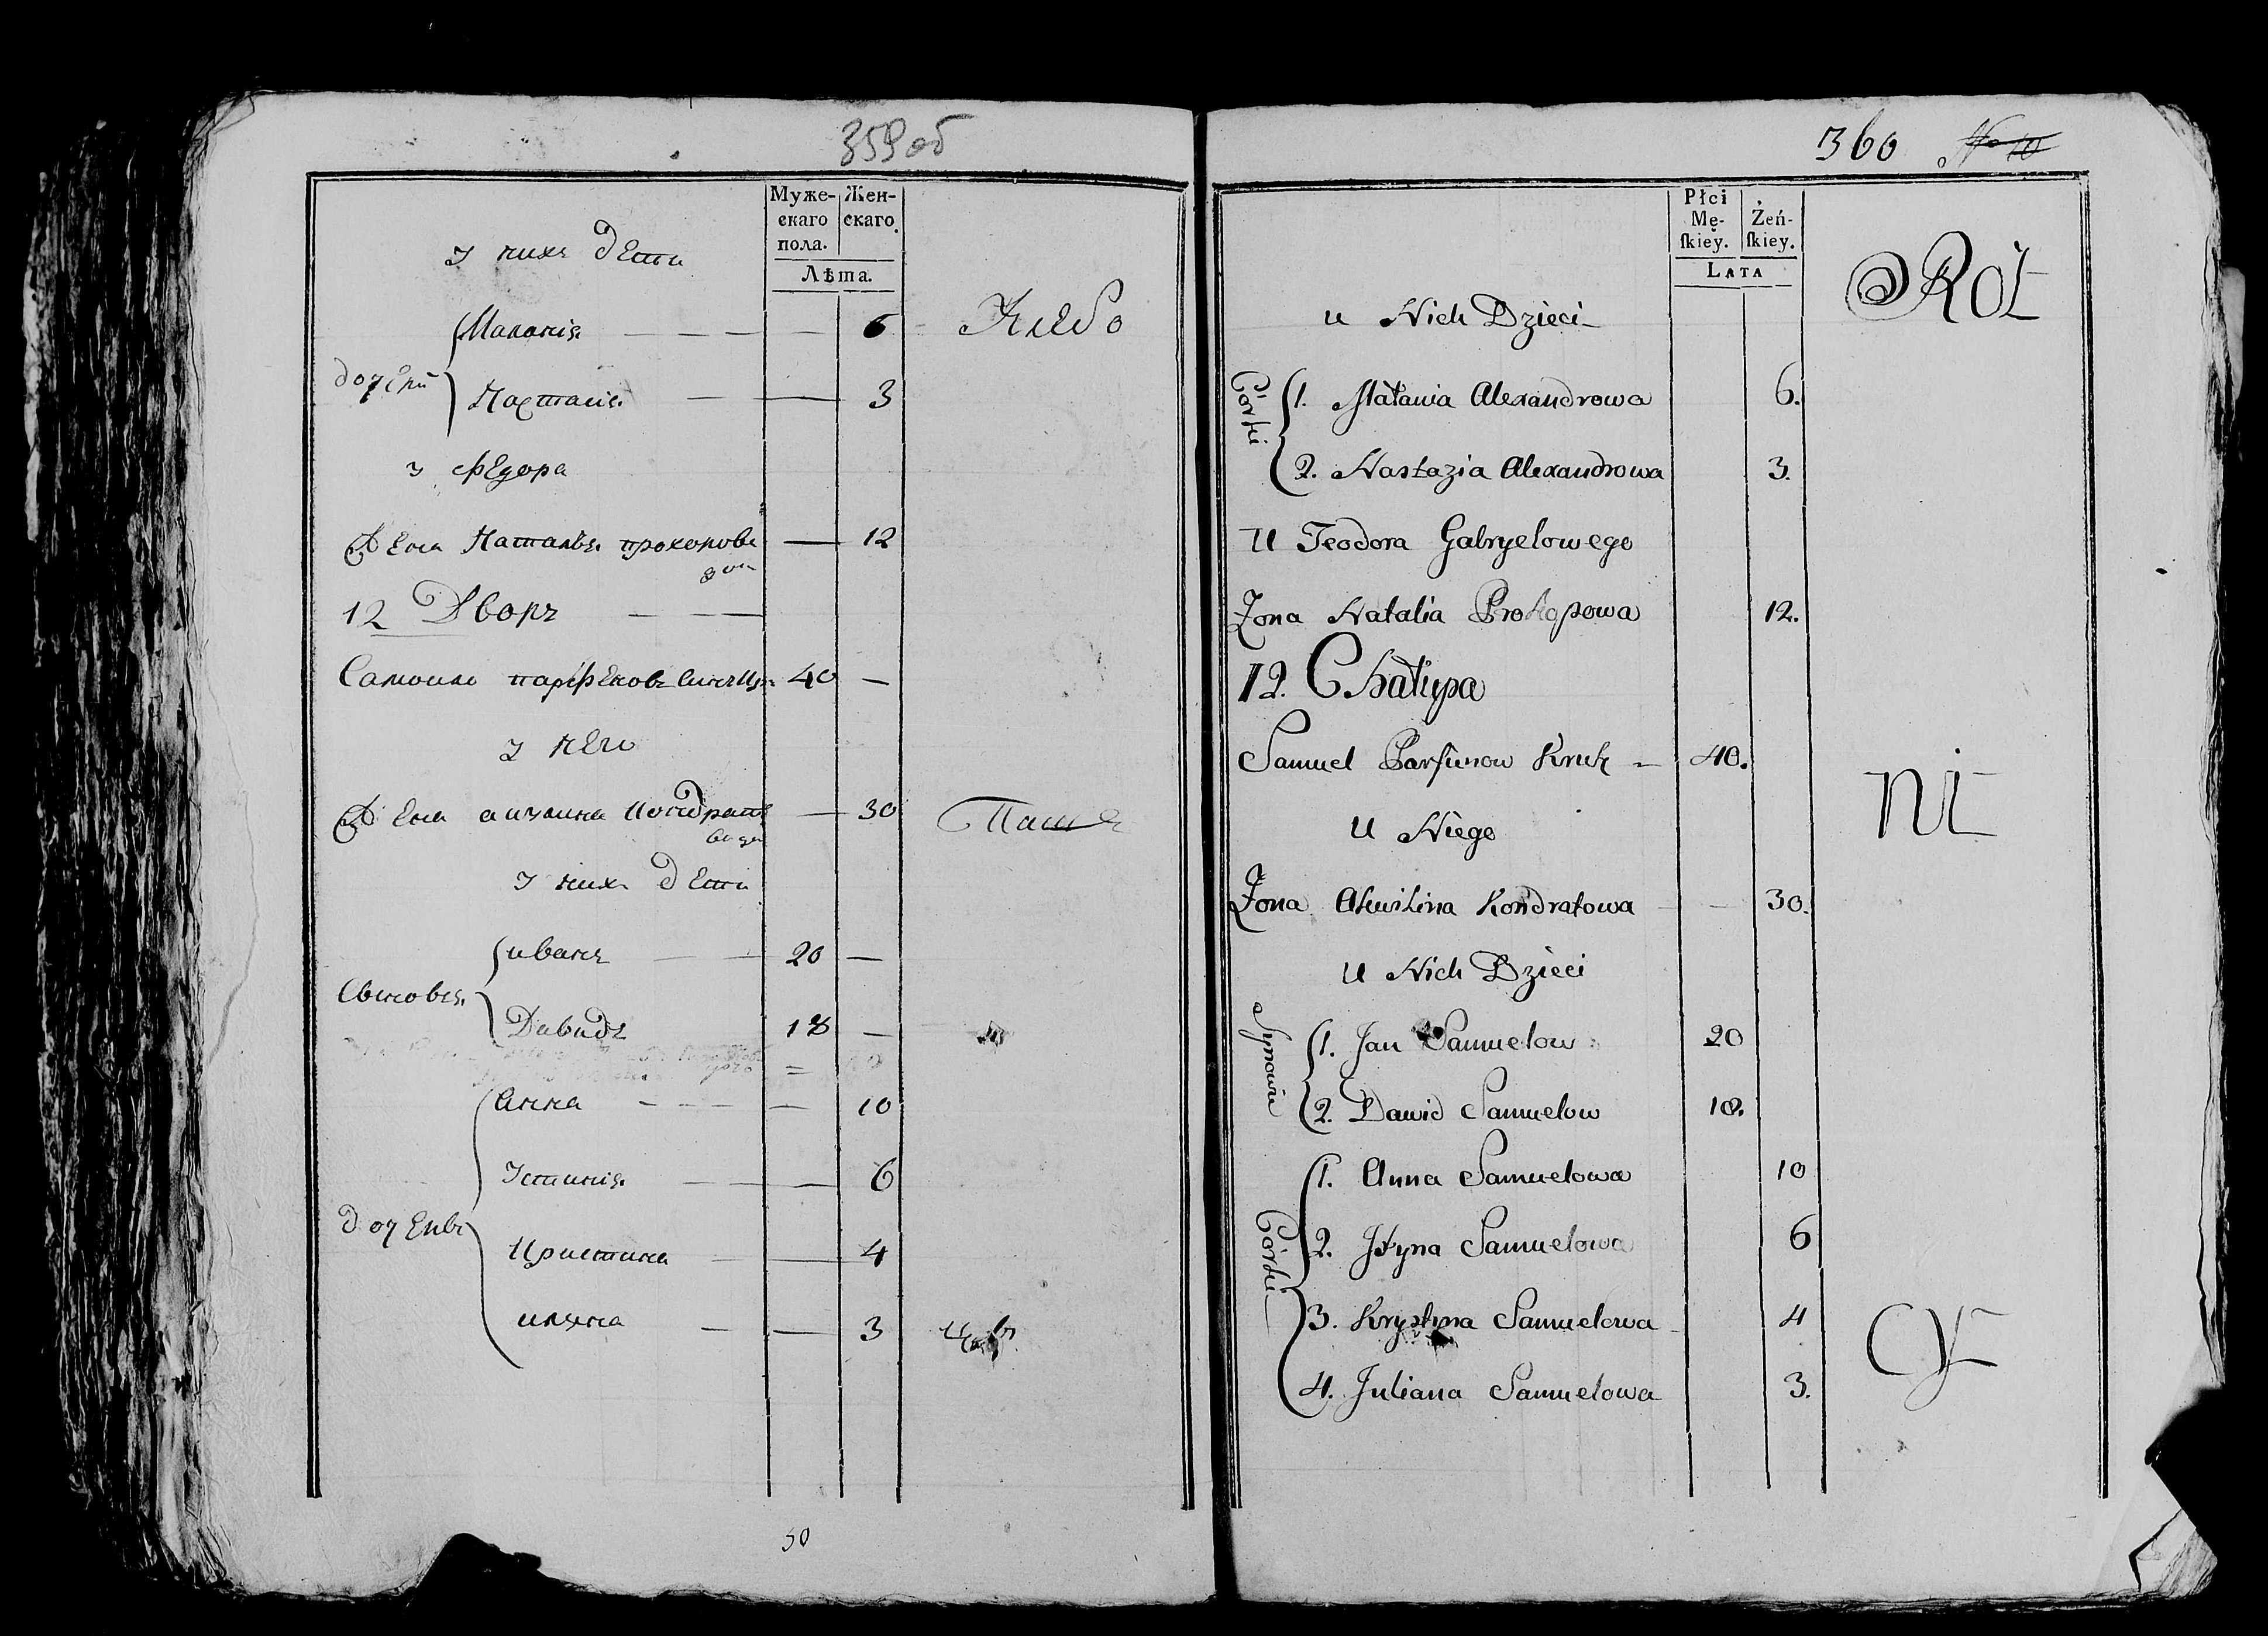 359об
Муже-
скаго
пола.
Жен-
скаго.
Лѣта.
У нихъ дети
Маланія — — — — 6
дочери
Настасія — — 3
Хлебо
у Федора
Жена Наталья прокопова
дочь — 12
12 Дворъ — —
Самоило парфеновъ 40 —
у него
Жена акилина кондрать
ева — 30
Паше
у нихъ дети
Сыновья
иванъ — — 20 —
Давидъ 18 —
дочери
Анна — — — — 10
Устинія — — 6
кристина — — 4
иляна — — 3
30
360 № 10
Płci
Mę-
skiey.
Żeń-
skiey.
LATA
u Nich Dzieci
Roł
Córki
1. Małania Alexandrowa 6.
2. Nastazia Alexandrowa 3.
U Teodora Gabryelowego
Żona Natalia Prokopowa 12.
12. Chałupa
Samuel Parfienow Kruk 40.
U Niego
ni
Żona Akwilina Kondratowa 30.
U Nich Dzieci
Synowie
1. Jan Samuelow 20
2. Dawid Samuelow 18.
Córki
1. Anna Samuelowa 10
2. Jstyna Samuelowa 6
3. Krystyna Samuelowa 4
4. Juliana Samuelowa 3.
cy